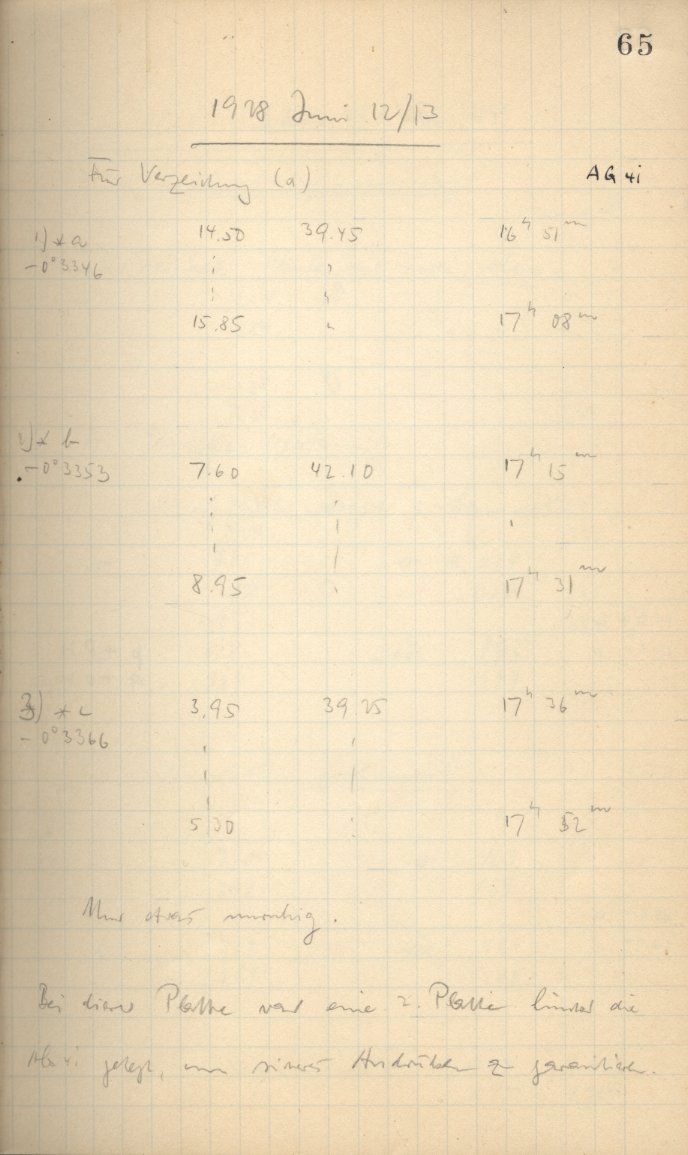 65
1928 Juni 12/13
Für Verzeichnung (a)
AG 4i
1) * a 14.50 39.45 16h 51m
-0°3346
15.85 " 17h 08m
2) * b
-0°3353 7.60 42.10 17h 15m
8.95 17h 31m
3) * c 3.95 39.25 17h 36m
-0°3366
5.30 17h 52m
etwas unruhig.
Bei dieser Platte war eine 2. Platte hinter die
AG 4i gelegt, um sicheres Andrücken zu garantieren.